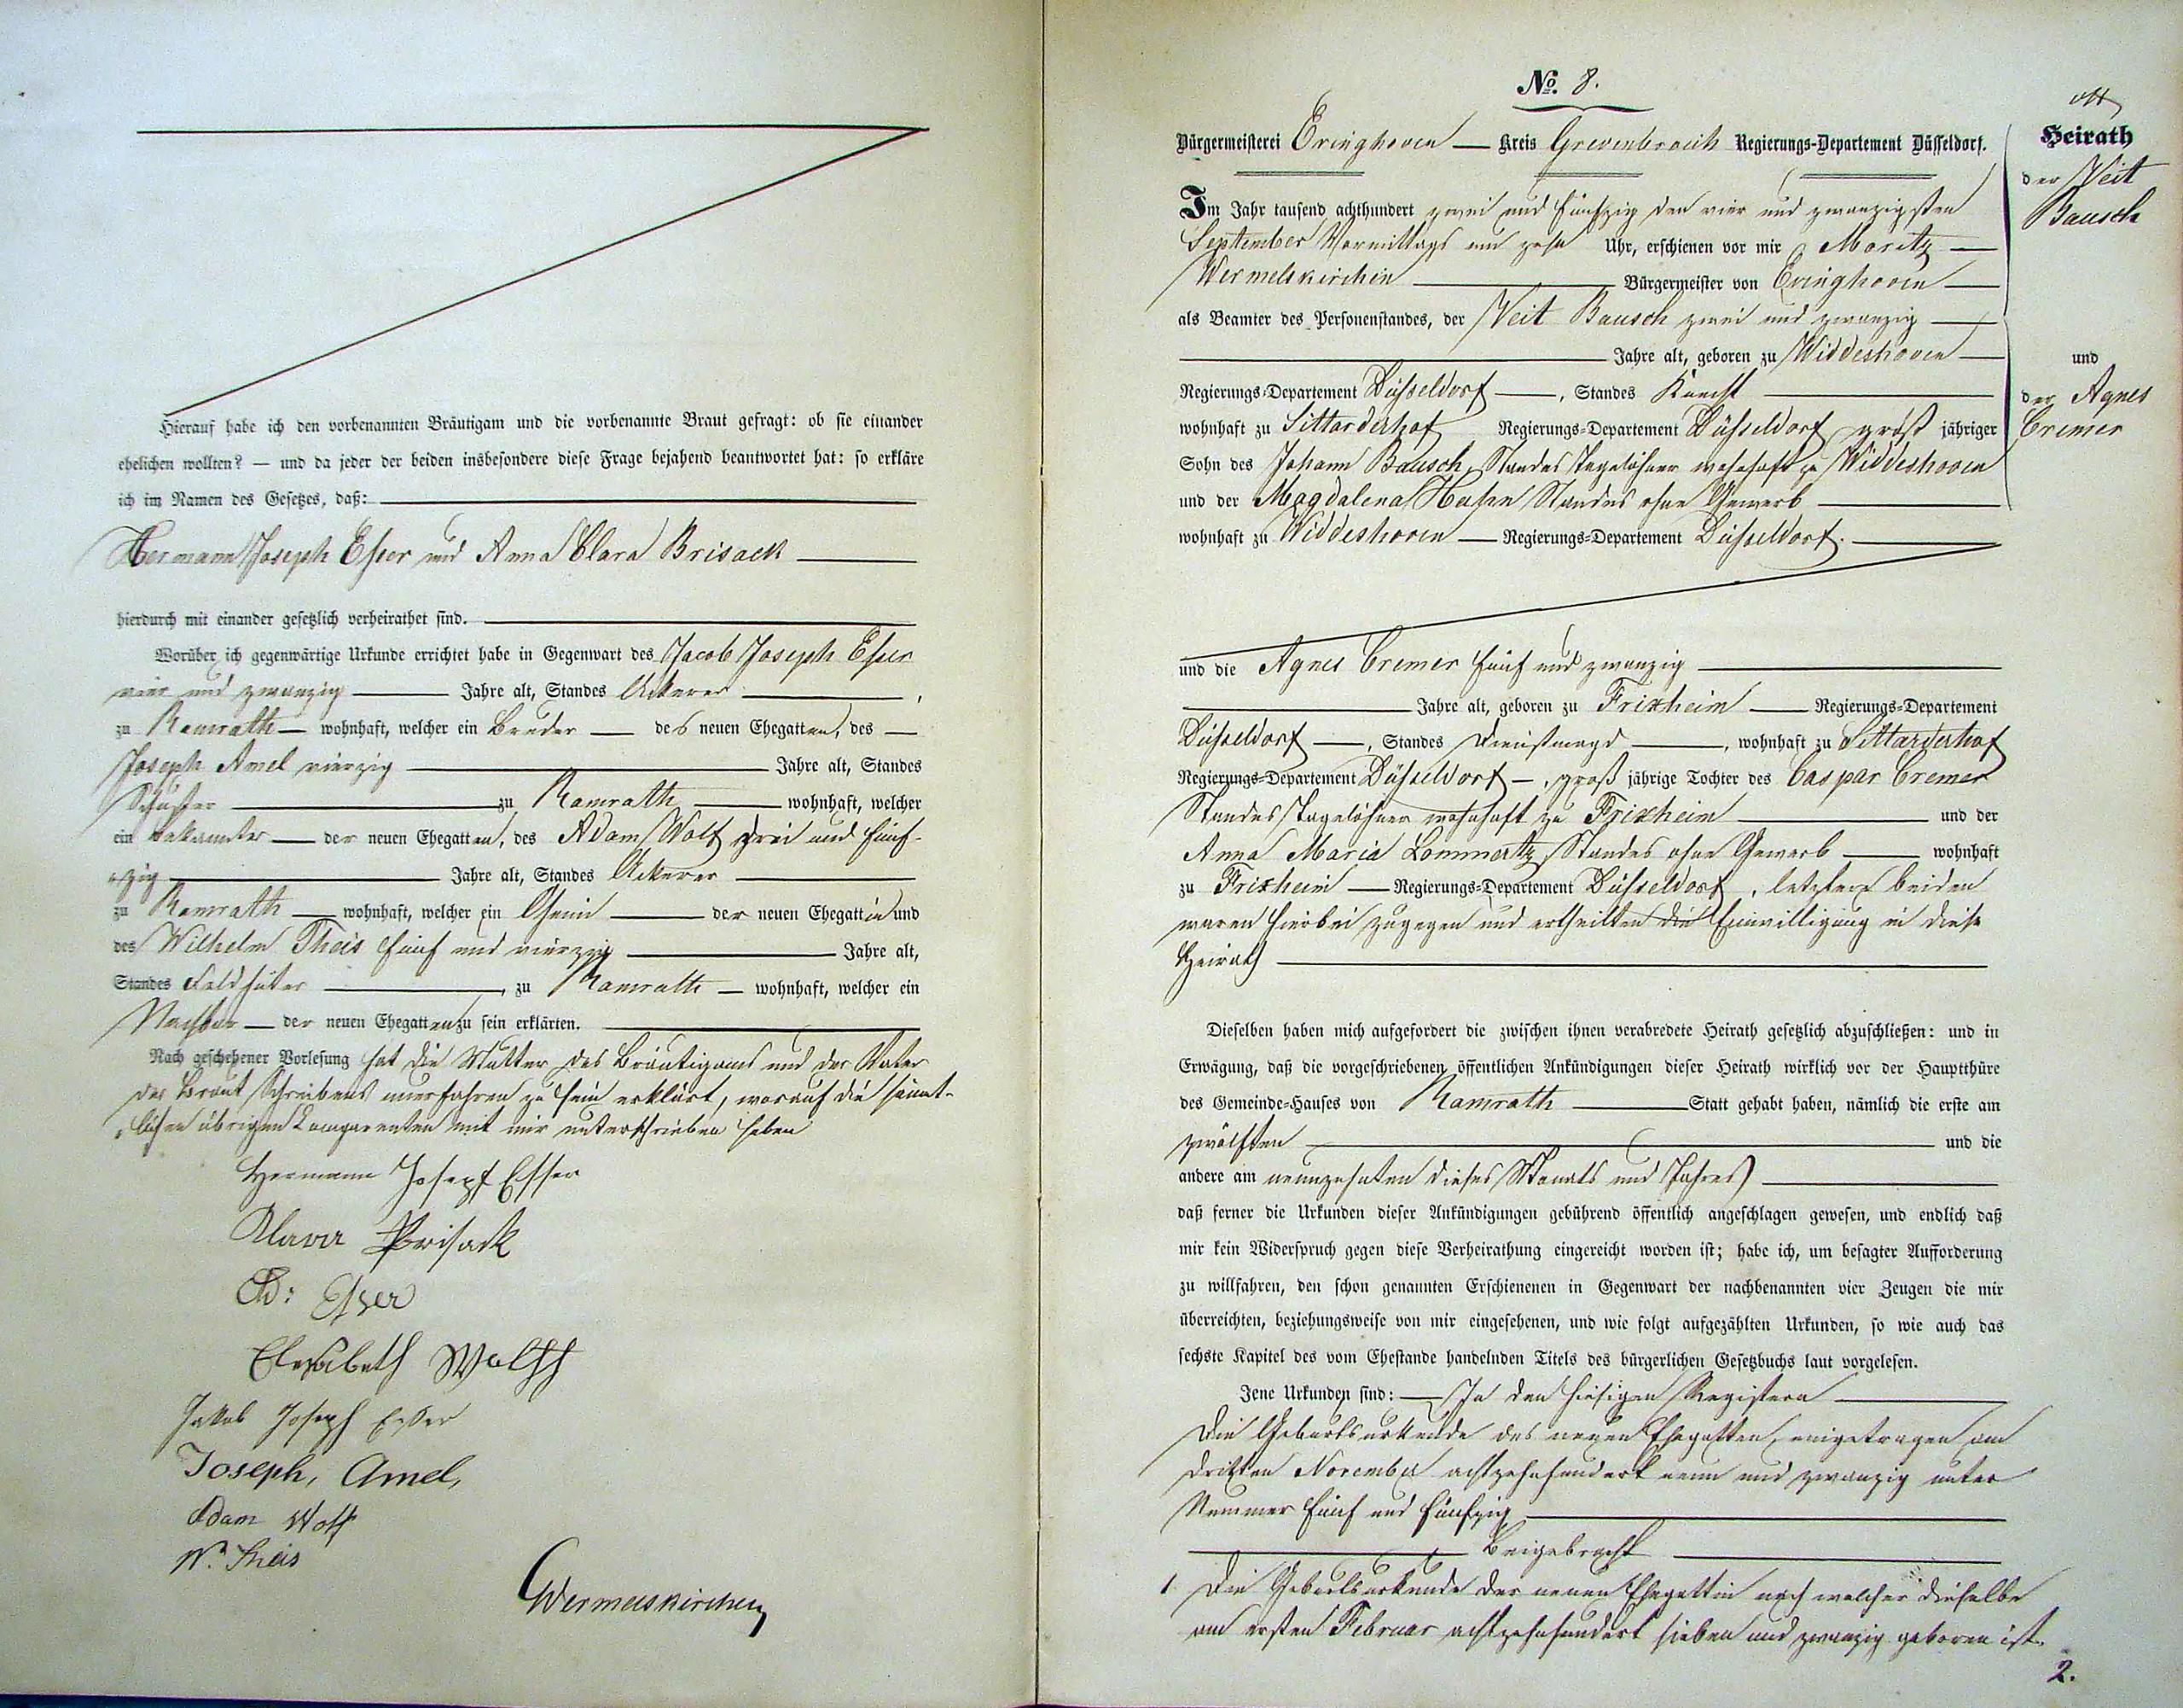 Hierauf habe ich den vorbenannten Bräutigam und die vorbenannte Braut gefragt: ob sie einander
ehelichen wollten? — und da jeder der beiden insbesondere diese Frage bejahend beantwortet hat: so erkläre
ich im Namen des Gesetzes, daß:
Hermann Joseph Esser und Anna Clara Brisack
hierdurch mit einander gesetzlich verheirathet sind.
Worüber ich gegenwärtige Urkunde errichtet habe in Gegenwart des Jacob Joseph Esser
vier und zwanzig — Jahre alt, Standes Ackerer,
zu Ramrath — wohnhaft, welcher ein Bruder — des neuen Ehegatten, des —
Joseph Amel vierzig — Jahre alt, Standes
Schuster — zu Ramrath — wohnhaft, welcher
ein Bekannter — der neuen Ehegatten, des Adam Wolf drei und fünf-
zig — Jahre alt, Standes Ackerer —
zu Ramrath — wohnhaft, welcher ein Oheim — der neuen Ehegattin und
des Wilhelm Theis fünf und vierzig — Jahre alt,
Standes Feldhüter —, zu Ramrath — wohnhaft, welcher ein
Nachbar — der neuen Ehegatten zu sein erklärten.
Nach geschehener Vorlesung hat die Mutter des Bräutigams und der Vater
der Braut Schreibens unerfahren zu sein erklärt, worauf die sämmt-
lichen übrigen Comparenten mit mir unterschrieben haben
Hermann Joseph Esser
Klara Prisack
Ad: Esser
Elisabeth Wolff
Jakob Joseph Esser
Joseph, Amel,
Adam Wolf
W. Theis
Wermelskirchen
No. 8.
Bürgermeisterei Evinghoven — Kreis Grevenbroich Regierungs-Departement Düsseldorf.
Im Jahr tausend achthundert zwei und fünfzig den vier und zwanzigsten
September Vormittags um zehn Uhr, erschienen vor mir Moritz —
Wermelskirchen — Bürgermeister von Evinghoven —
als Beamter des Personenstandes, der Veit Bausch zwei und zwanzig —
— Jahre alt, geboren zu Widdeshoven —
Regierungs-Departement Düsseldorf —, Standes Knecht —
wohnhaft zu Sittarderhof Regierungs-Departement Düsseldorf, groß jähriger
Sohn des Johann Bausch, Standes Tagelöhner wohnhaft zu Widdeshoven
und der Magdalena Hahn Standes ohne Gewerb —
wohnhaft zu Widdeshoven — Regierungs-Departement Düsseldorf. —
und die Agnes Cremer fünf und zwanzig —
— Jahre alt, geboren zu Frixheim — Regierungs-Departement
Düsseldorf —, Standes Dienstmagd —, wohnhaft zu Sittarderhof
Regierungs-Departement Düsseldorf —, groß jährige Tochter des Caspar Cremer
Standes Tagelöhner wohnhaft zu Frixheim — und der
Anna Maria Lommertz Standes ohne Gewerb — wohnhaft
zu Frixheim — Regierungs-Departement Düsseldorf, letztere beiden
waren hierbei zugegen und ertheilten die Einwilligung in diese
Heirath —
Dieselben haben mich aufgefordert die zwischen ihnen verabredete Heirath gesetzlich abzuschließen: und in
Erwägung, daß die vorgeschriebenen öffentlichen Ankündigungen dieser Heirath wirklich vor der Hauptthüre
des Gemeinde-Hauses von Ramrath — Statt gehabt haben, nämlich die erste am
zwölften — und die
andere am neunzehnten dieses Monats und Jahres —
daß ferner die Urkunden dieser Ankündigungen gebührend öffentlich angeschlagen gewesen, und endlich daß
mir kein Widerspruch gegen diese Verheirathung eingereicht worden ist; habe ich, um besagter Aufforderung
zu willfahren, den schon genannten Erschienenen in Gegenwart der nachbenannten vier Zeugen die mir
überreichten, beziehungsweise von mir eingesehenen, und wie folgt aufgezählten Urkunden, so wie auch das
sechste Kapitel des vom Ehestande handelnden Titels des bürgerlichen Gesetzbuchs laut vorgelesen.
Jene Urkunden sind: — In den hiesigen Registern —
Die Geburtsurkunde des neuen Ehegatten, eingetragen am
dritten November achtzehnhundert neun und zwanzig unter
Nummer fünf und fünfzig —
— Beigebracht —
1 Die Geburtsurkunde der neuen Ehegattin nach welcher dieselbe
am ersten Februar achtzehnhundert sieben und zwanzig geboren ist.
2.
Heirath
der Veit
Bausch
und
der Agnes
Cremer